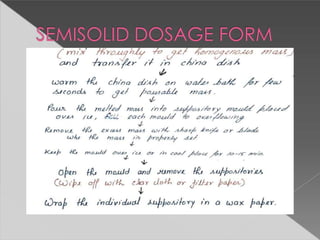 SEMISOLID DOSAGE FORM
(mix throughly to get homogenous mass)
and transfer it in china dish
warm the china dish on water bath for few
seconds to get pourable mass.
Pour the melted mass into suppository mould placed
over ice, each mould to overflowing
Remove the excess mass with sharp knife or blade
the mass is properly set
Keep the mould over ice or in cool place for 10-15 min.
Open the mould and remove the suppositories
(wipe off with clear cloth or filter paper)
Wrap the individual suppository in a wax paper.